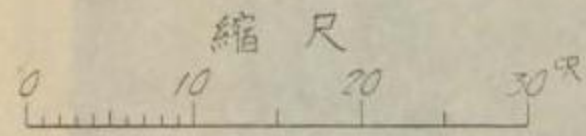 縮 尺
0 10 20 30尺